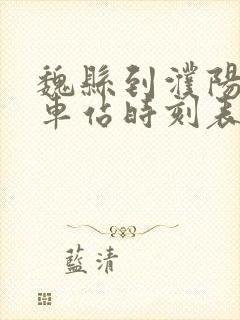 魏縣到濮陽
車佔時刻表
藍清